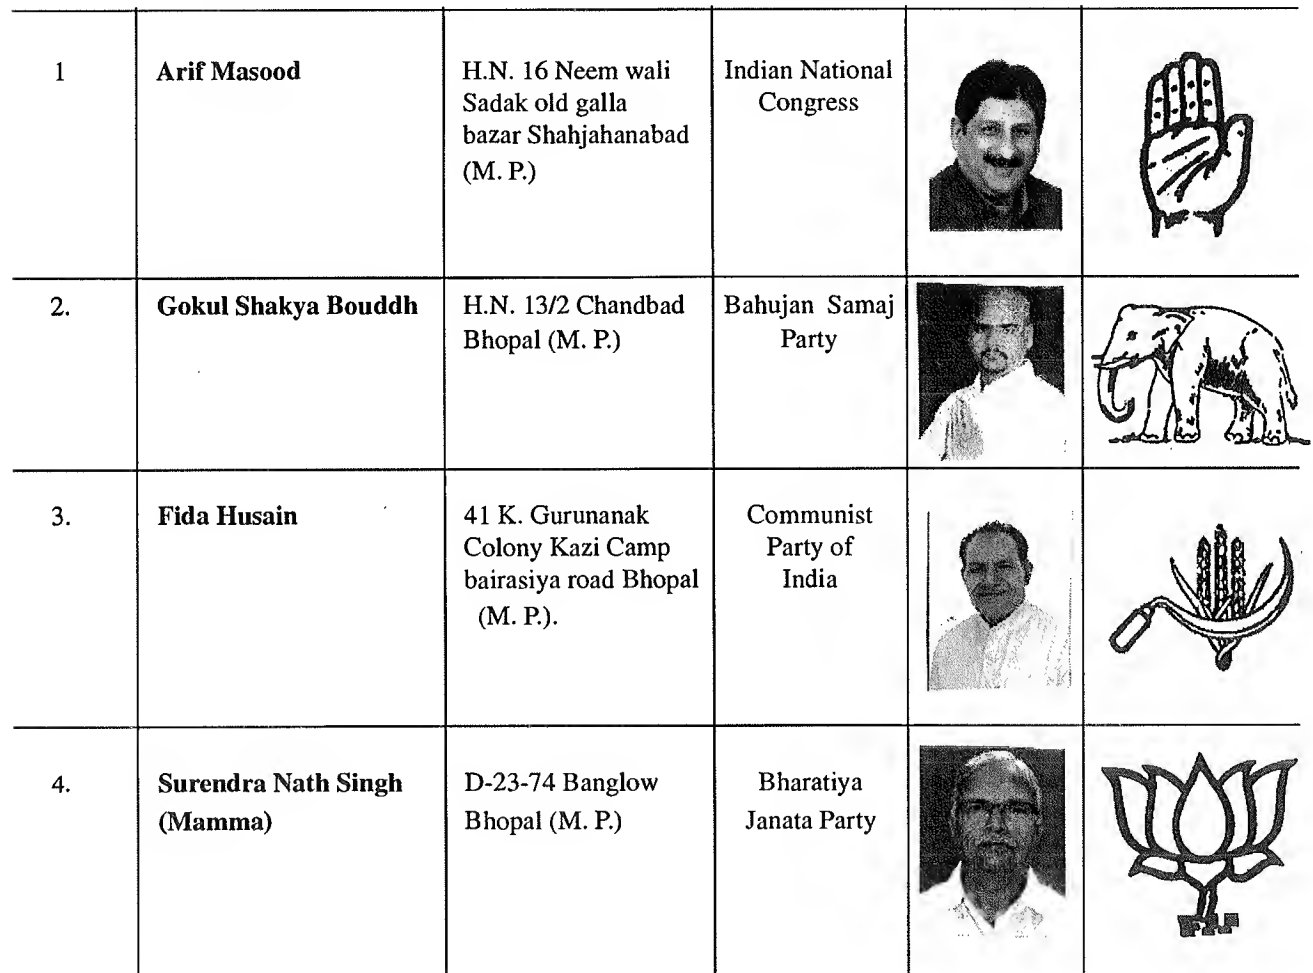 1
Arif Masood
H.N. 16 Neem wali
Sadak old galla
bazar Shahjahanabad
(M. P.)
Indian National
Congress
2.
Gokul Shakya Bouddh
H.N. 13/2 Chandbad
Bhopal (M. P.)
Bahujan Samaj
Party
3.
Fida Husain
41 K. Gurunanak
Colony Kazi Camp
bairasiya road Bhopal
(M. P.).
Communist
Party of
India
4.
Surendra Nath Singh
(Mamma)
D-23-74 Banglow
Bhopal (M. P.)
Bharatiya
Janata Party